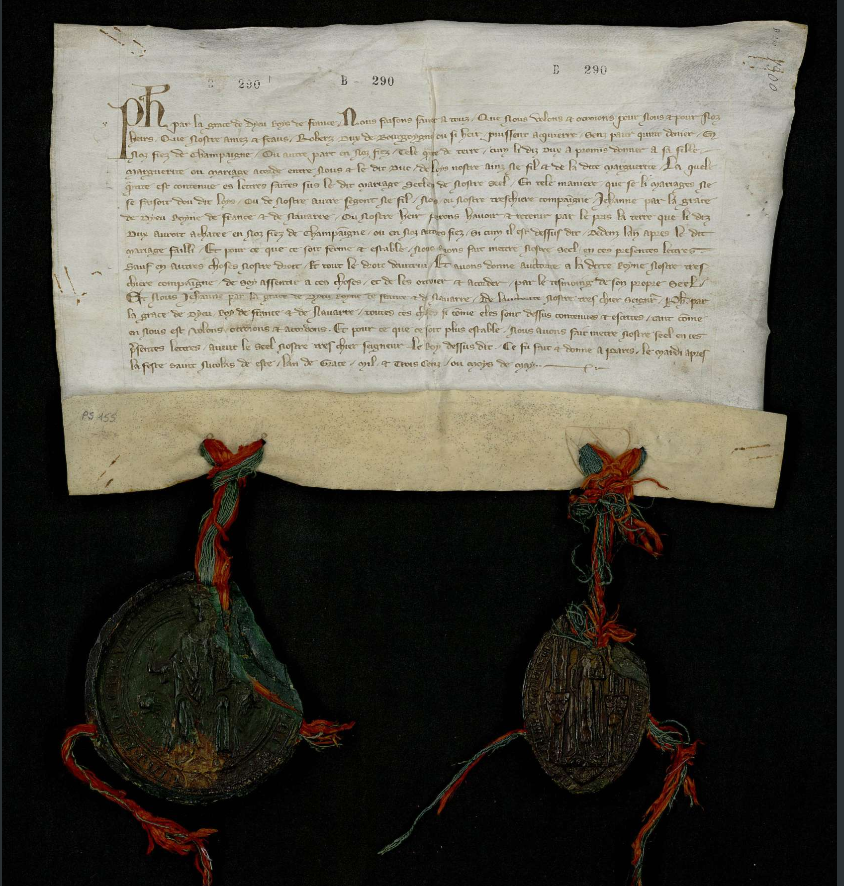 B 290 B 290 B 290
Ph par la grace de Dyeu Roys de france. Nous faisons savoir a touz. Que Nous volons et otroions pour Nous et pour Noz
Hoirs. Que Nostre amez et feaus, Robers Dux de Bourgoigne ou si hoir, puissent acquerre, senz paier quint denier, en
Noz fiez de Champaigne, Ou autre part en noz fiez, Tele que de terre, cum li diz Dux a promis donner a sa fille
marguerite ou mariage acorde entre nous et le dit Duc, de Loys nostre ainz ne fil et de la dite marguerite. La quele
est contenue es lettres faites sus le dit mariage Seelees de nostre seel. En tele maniere que se li mariages ne
se fasoit dou dit Loys, Ou de nostre autre segont ne fil, Nous ou nostre treschiere compaigne Jehanne par la grace
de Dyeu Royne de france et de Navarre, Ou nostre hoir puissens havoir et retenir par le pris la terre que li diz
Dux auroit achatee en noz fiez de Champaigne, ou en noz autres fiez, si cum il est dessus dit, Dedenz lan apres le dit
mariage failli. Et pour ce que ce soit ferme et estable, Nous avons fait metre Nostre Seel en ces presentes lettres.
Sauf en autres choses nostre droit, Et tout le droit dautrui. Et avons donne auctorite a la dicte Royne nostre tres
chiere compaigne, de soy assentir a ces choses, et de les otroier et acorder, par le tesmoing de son propre Seel.
Et Nous Jehanne par la grace de Dyeu Royne de france et de Navarre, De nostre tres chier seigneur, Ph. par
la grace de Dyeu, Roy de france et de Navarre, toutes ces choses si come eles sont dessus contenues et escrites, tant come
en nous est, volons, otroions et acordons. Et pour ce que ce soit plus estable, Nous avons fait metre nostre seel en ces
presentes lettres, avuec le seel nostre tres chier seigneur le Roy dessus dit. Ce fu fait et donne a Paris, le mardi apres
la feste saint Nicolas de este, lan de Grace, mil, et Trois Cenz, ou moys de may.
PS 155